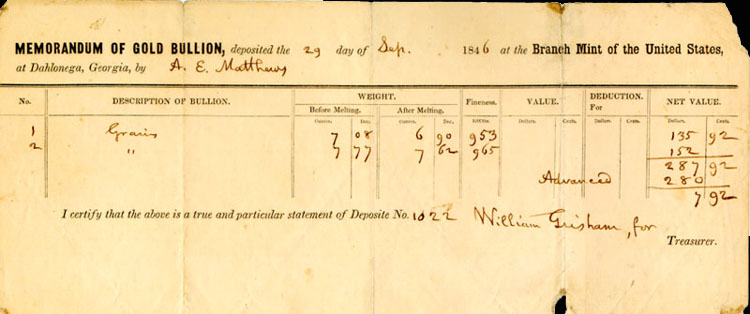 MEMORANDUM OF GOLD BULLION, deposited the 29 day of Sep. 1846 at the Branch Mint of the United States,
at Dahlonega, Georgia, by A. E. Matthews
No. DESCRIPTION OF BULLION. WEIGHT. Fineness. VALUE. DEDUCTION. NET VALUE.
Before Melting. After Melting. For
Ounces. Dec. Ounces. Dec. Dollars. Cents. Dollars. Cents. Dollars. Cents.
1 Grains 7 08 6 90 953 135 92
2 " 7 77 7 62 965 152
287 92
Advanced 280
7 92
I certify that the above is a true and particular statement of Deposite No. 1022 William Grisham, for
Treasurer.